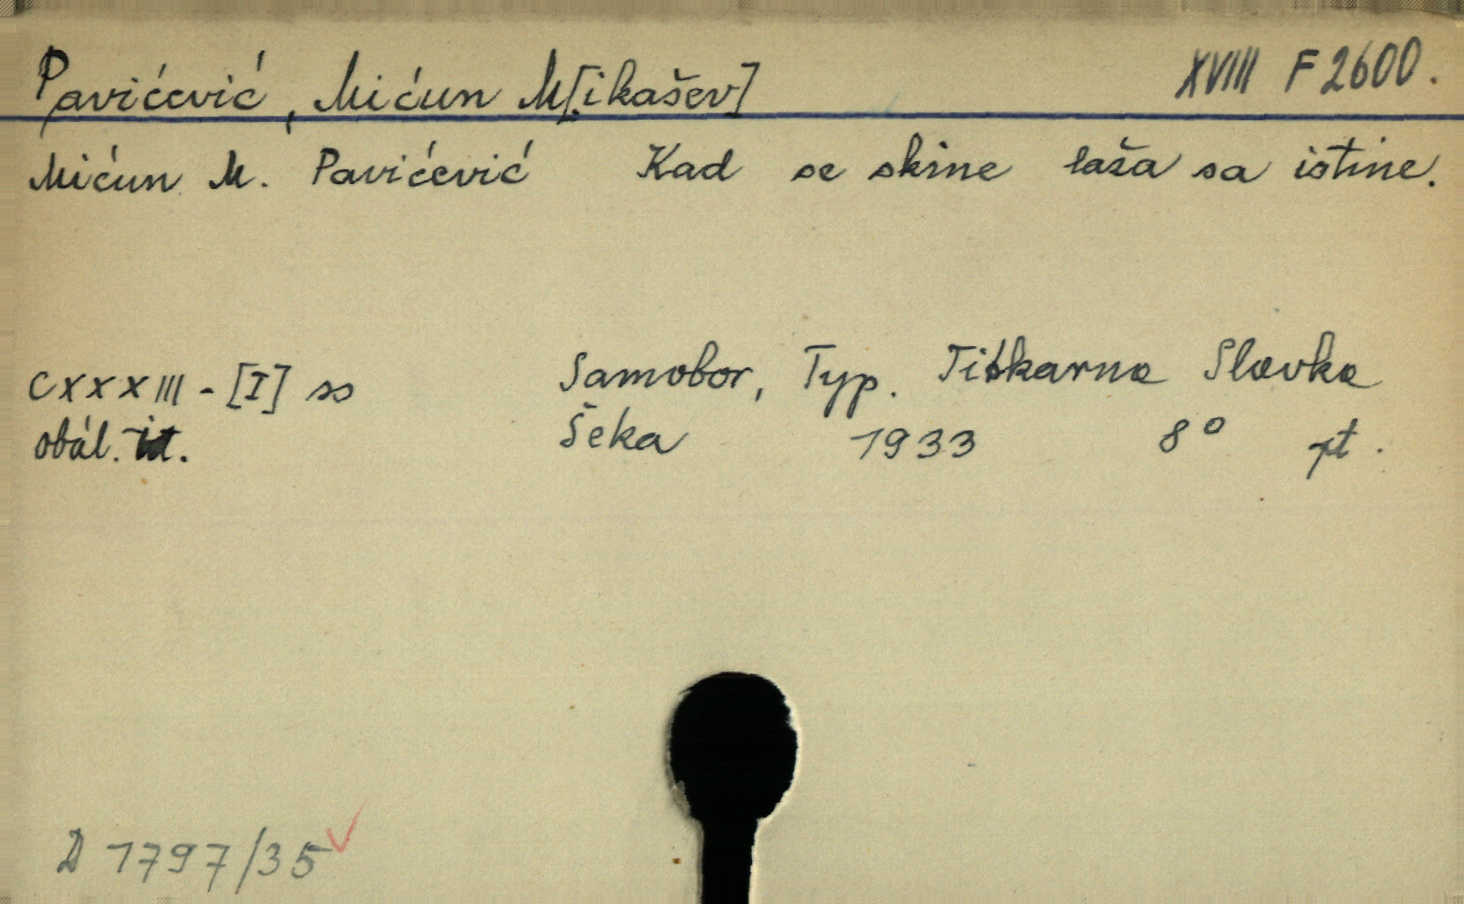 Pavićević, Mićun M[ikašev] XVIII F 2600.
Mićun M. Pavićević Kad se skine laža sa istine.
CXXXIII - [I] ss Samobor, Typ. Tiskarna Slavka
obál. it. Šeka 1933 8° pt.
D 1797/35